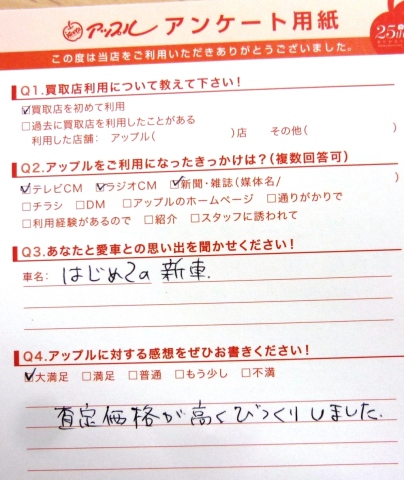 アップル アンケート用紙
この度は当店をご利用いただきありがとうございました。
Q1.買取店利用について教えて下さい!
☑買取店を初めて利用
□過去に買取店を利用したことがある
利用した店舗: アップル( )店 その他( )
Q2.アップルをご利用になったきっかけは?(複数回答可)
☑テレビCM ☑ラジオCM ☑新聞・雑誌(媒体名/ )
□チラシ □DM □アップルのホームページ □通りがかりで
□利用経験があるので □紹介 □スタッフに誘われて
Q3.あなたと愛車との思い出を聞かせください!
車名: はじめての新車.
Q4.アップルに対する感想をぜひお書きください!
☑大満足 □満足 □普通 □もう少し □不満
査定価格が高くびっくりしました.